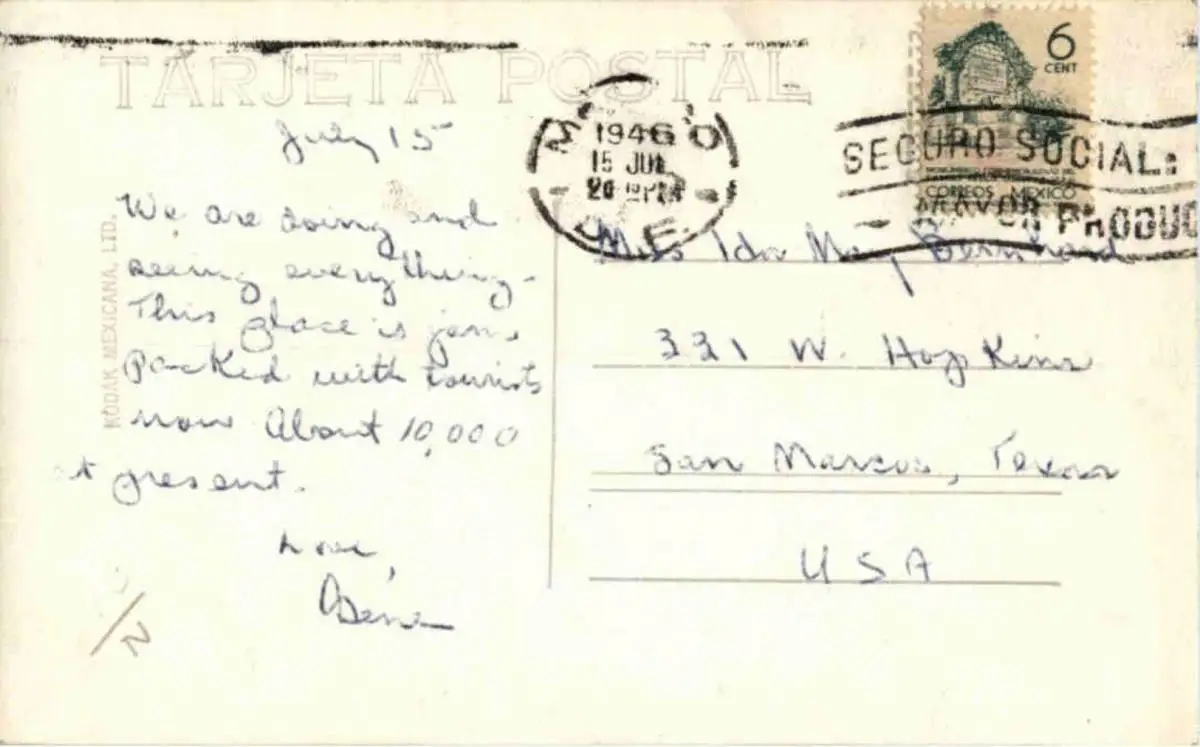 TARJETA POSTAL
KODAK MEXICANA, LTD.
July 15
We are doing and
seeing everything -
This place is jam
packed with tourists
now About 10,000
at present.
Love,
Gene
6
CENT
CORREOS MEXICO
1946
15 JUL
SEGURO SOCIAL:
MAYOR PRODUC
Miss Ida May Bernhard
331 W. Hopkins
San Marcos, Texas
USA